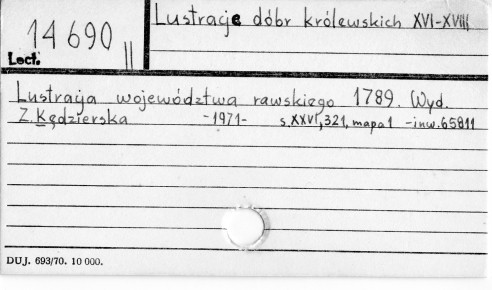 Lustracje dóbr królewskich XVI-XVIII
14690 II
Lect.
Lustracja województwa rawskiego 1789. Wyd.
Z. Kędzierska -1971- s. XXVI, 321, mapa 1 -inw. 65811
DUJ. 693/70. 10 000.